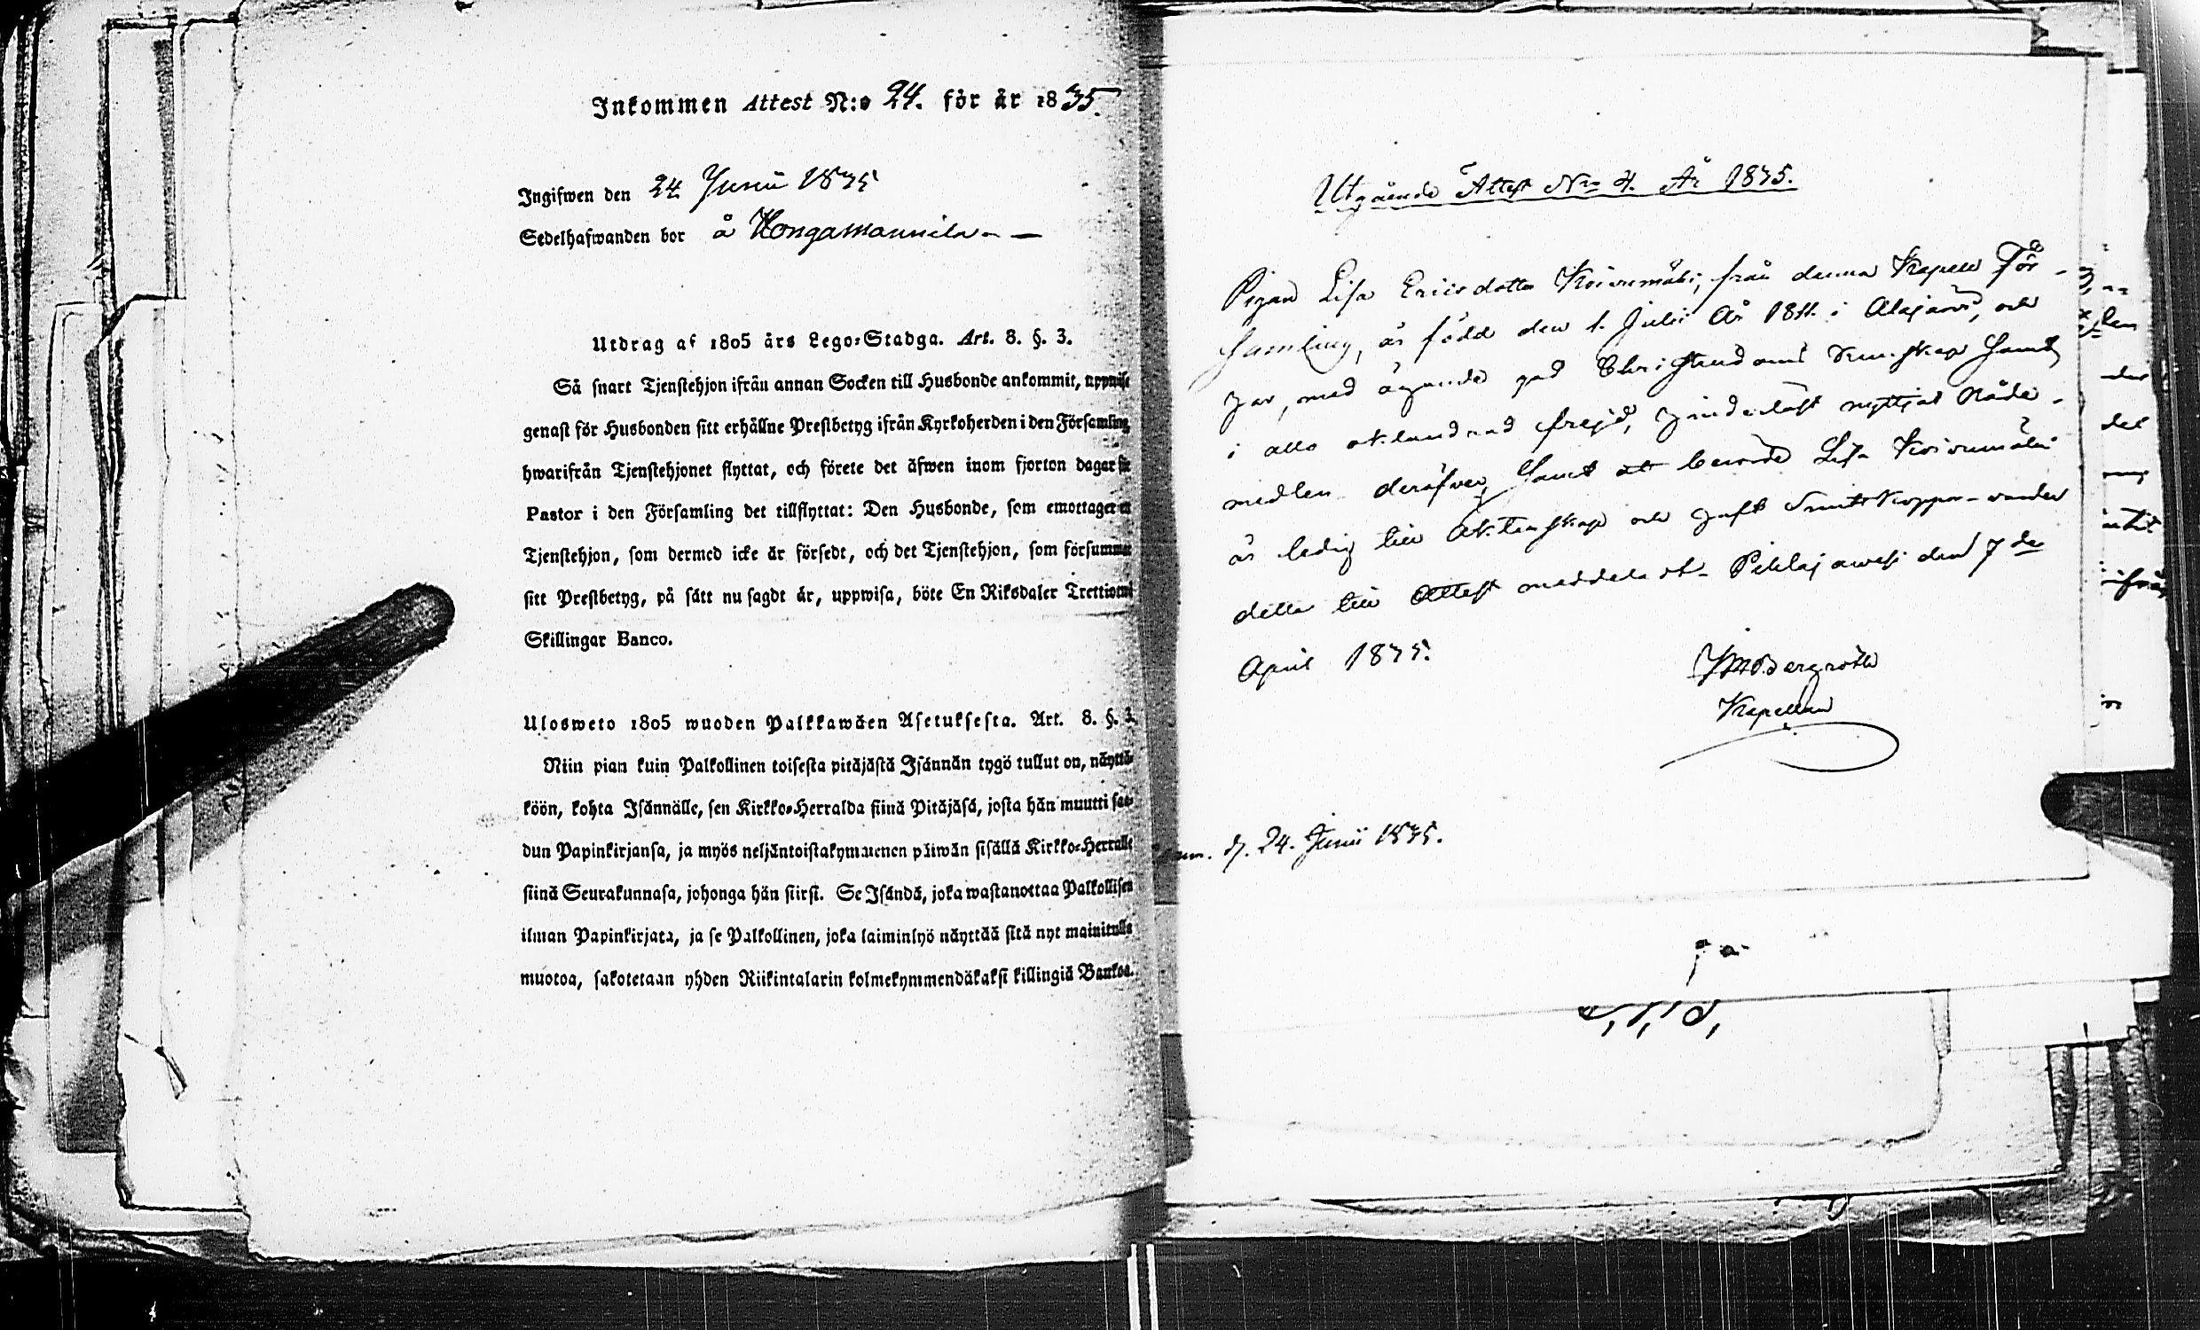 Inkommen Attest N:o 24. för år 1835.
Ingifwen den 24 Junii 1835
Sedelhafwanden bor å Hongamannila
Utdrag af 1805 års Lego-Stadga. Art. 8. §. 3.
Så snart Tjenstehjon ifrån annan Socken till Husbonde ankommit, uppwise
genast för Husbonden sitt erhållne Prestbetyg ifrån Kyrkoherden i den Församling
hwarifrån Tjenstehjonet flyttat, och förete det äfwen inom fjorton dagar för
Pastor i den Församling det tillflyttat: Den Husbonde, som emottager et
Tjenstehjon, som dermed icke är försedt, och det Tjenstehjon, som försummar
sitt Prestbetyg, på sätt nu sagdt är, uppwisa, böte En Riksdaler Trettiotwå
Skillingar Banco.
Ulosweto 1805 wuoden Palkkawäen Asetuksesta. Art. 8. §. 3.
Niin pian kuin Palkollinen toisesta pitäjästä Isännän tygö tullut on, näyttä-
köön, kohta Isännälle, sen Kirkko-Herralda siinä Pitäjäsä, josta hän muutti saa-
dun Papinkirjansa, ja myös neljäntoistakymmenen päiwän sisällä Kirkko-Herralle
siinä Seurakunnasa, johonga hän siirsi. Se Isändä, joka wastanottaa Palkollisen
ilman Papinkirjata, ja se Palkollinen, joka laiminlyö näyttää sitä nyt mainitulla
muotoa, sakotetaan yhden Riikintalarin kolmekymmendäkaksi killingiä Bankoa.
Utgående Attest No 4. År 1835.
Pigan Lisa Ericsdotter Koivumäki, från denna Kapell För-
samling, är född den 1. Julii År 1811. i Alajärvi, och
har, med ägande god Christendoms kunskap samt
i allo oklandrad frejd, hinderlöst nyttjat Nåde-
medlen deröfver, Samt att berörde Lisa Koivumäki
är ledig till Äktenskap och haft Smittkoppor warder
detta till Attest meddeladt. Pihlajawesi den 7de
April 1835.
Bergroth
Kapellan
d. 24. Junii 1835.